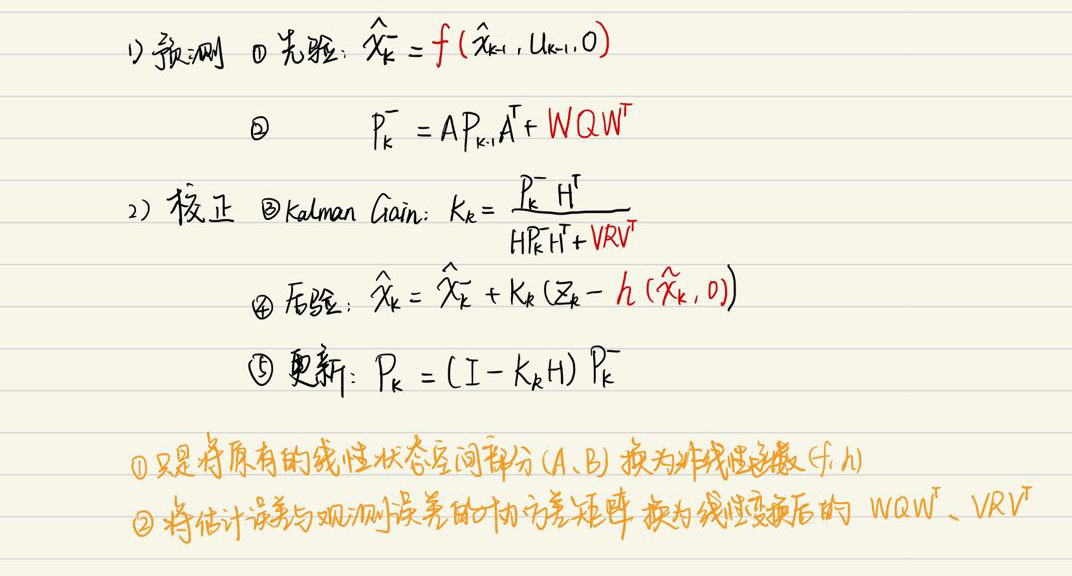 1) 预测 ① 先验: x̂ₖ⁻ = f(x̂ₖ₋₁, uₖ₋₁, 0)
② Pₖ⁻ = APₖ₋₁Aᵀ + WQWᵀ
2) 校正 ③ Kalman Gain: Kₖ = Pₖ⁻Hᵀ / (HPₖ⁻Hᵀ + VRVᵀ)
④ 后验: x̂ₖ = x̂ₖ⁻ + Kₖ(Zₖ - h(x̃̂ₖ, 0))
⑤ 更新: Pₖ = (I - KₖH) Pₖ⁻
① 只是将原有的线性状态空间部分(A、B) 换为非线性函数(f, h)
② 将估计误差与观测误差的协方差矩阵 换为线性变换后的 WQWᵀ、VRVᵀ